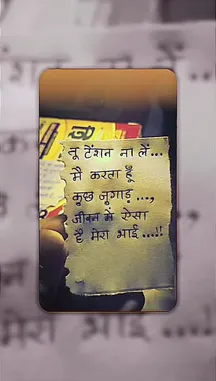 तू टेंशन ना लें...
मै करता हूँ
कुछ जुगाड़ ...,
जीवन में ऐसा
है मेरा भाई ...!!